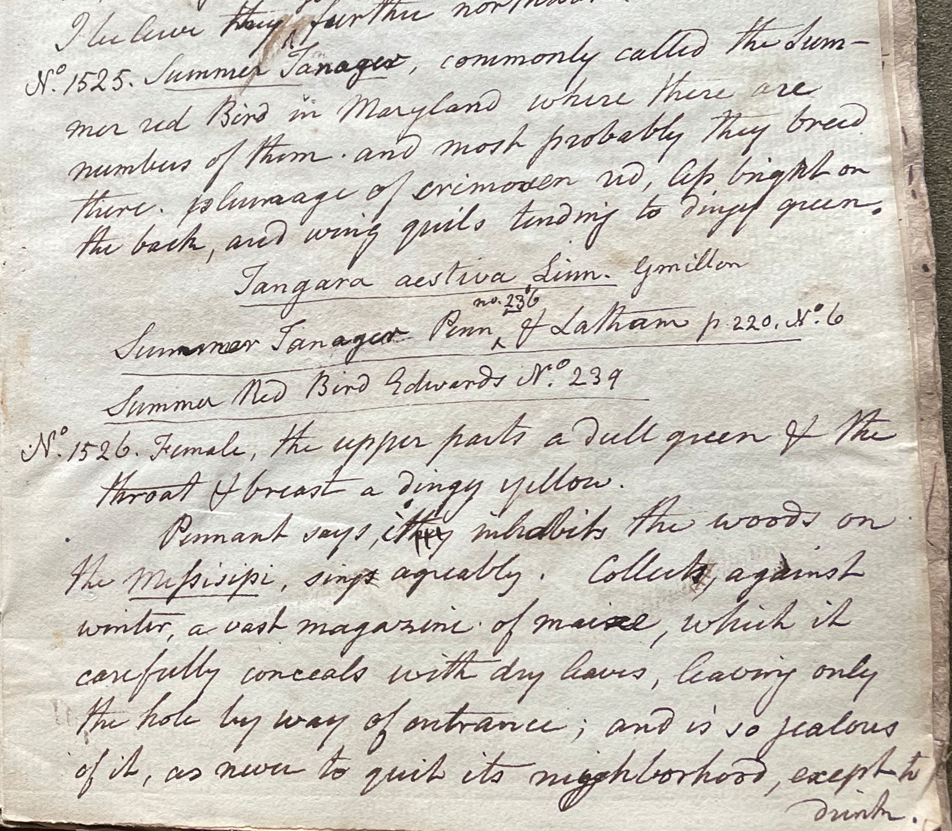 I beleive they further northward
No. 1525. Summer Tanager, commonly called the Sum-
mer red Bird in Maryland where there are
numbers of them. and most probably they breed
there. plumage of crimosen red, less bright on
the back, and wing quils tending to dingy green.
Tangara aestiva Linn. Gmillon
no. 236
Summer Tanager Penn, & Latham p 220. No. 6
Summer Red Bird Edwards No. 239
No. 1526. Female, the upper parts a dull green & the
throat & breast a dingy yellow.
Pennant says, it inhabits the woods on
the Messisipi, sings agreably. Collects, against
winter, a vast magazine of maize, which it
carefully conceals with dry leaves, leaving only
the hole by way of entrance; and is so jealous
of it, as never to quit its neighborhood, except to
drink.